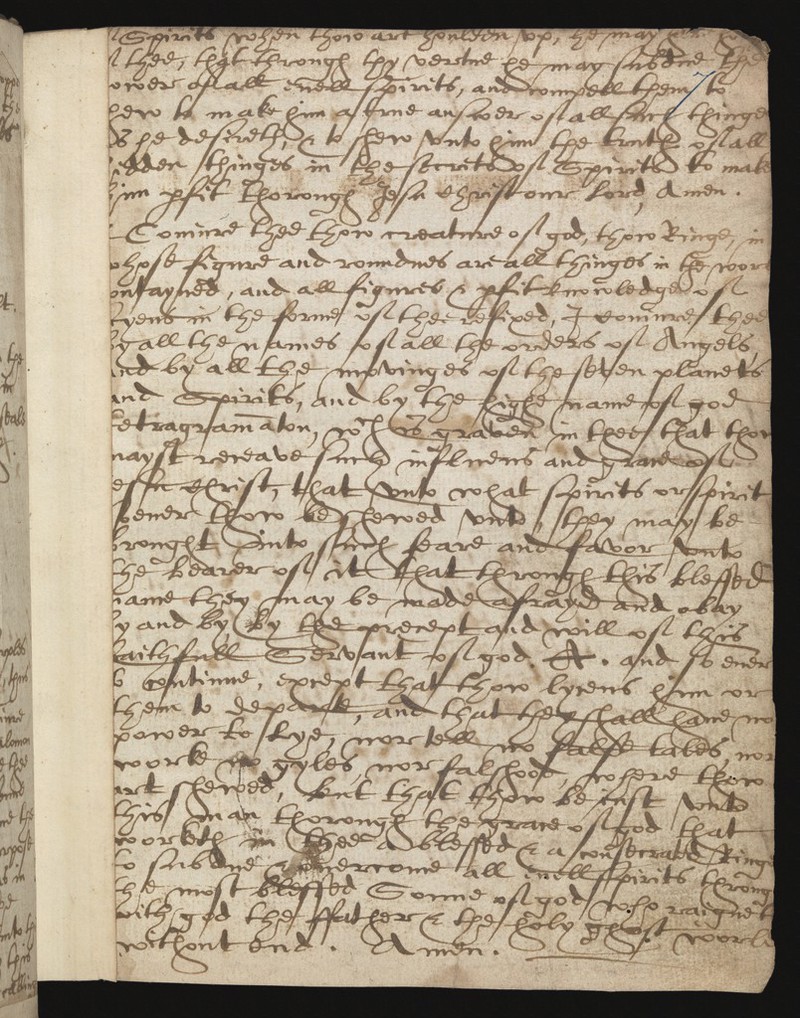 Spirits when thow art houlden vp, he may
thee, that through thy vertue he may subdue the
ower of all euell spirits, and compell them to
hew to make him a true answer of all such thinge
s he desireth, & to shew vnto him the truth of all
idden thinges in the secrits of Spirits to make
him pfit thorough Jesu Christ our Lord, Amen.
Coniure thee thow creature of god, thow Ringe, in
whose figure and roundnes are all thinges in the wor
ontayned, and all figures & pfit knowledge of
in the forme of thee I coniure thee
y all the names of all the orders of Angels
and by all the movinges of the seven planets
and Spirits, and by the highe name of god
etragramaton, wch is graven in thee that thow
mayst receave such influens and grace of
esu Christ, that vnto what spirits or spirit
soener thow be shewed vnto, they may be
brought into such feare and favor vnto
the bearer of it that through this blessed
name they may be made afrayd and obay
by and by, by the precept and will of this
faithfull Servant of god A. and so ener
continue, except that thow lycens him or
them to departe, and that they shall haue no
power to lye, nor tell no false tales, nor
worke no gyles, nor falshood, where thow
art shewed, but that thow be iust vnto
this man thorough the grace of god that
worketh in thee a blessed & a consecrated Ringe
to subdue & ouercome all euell spirits throug
the most blessed Sonne of god who raigneth
with god the ffather & the holy ghost worl
without end. Amen.
7